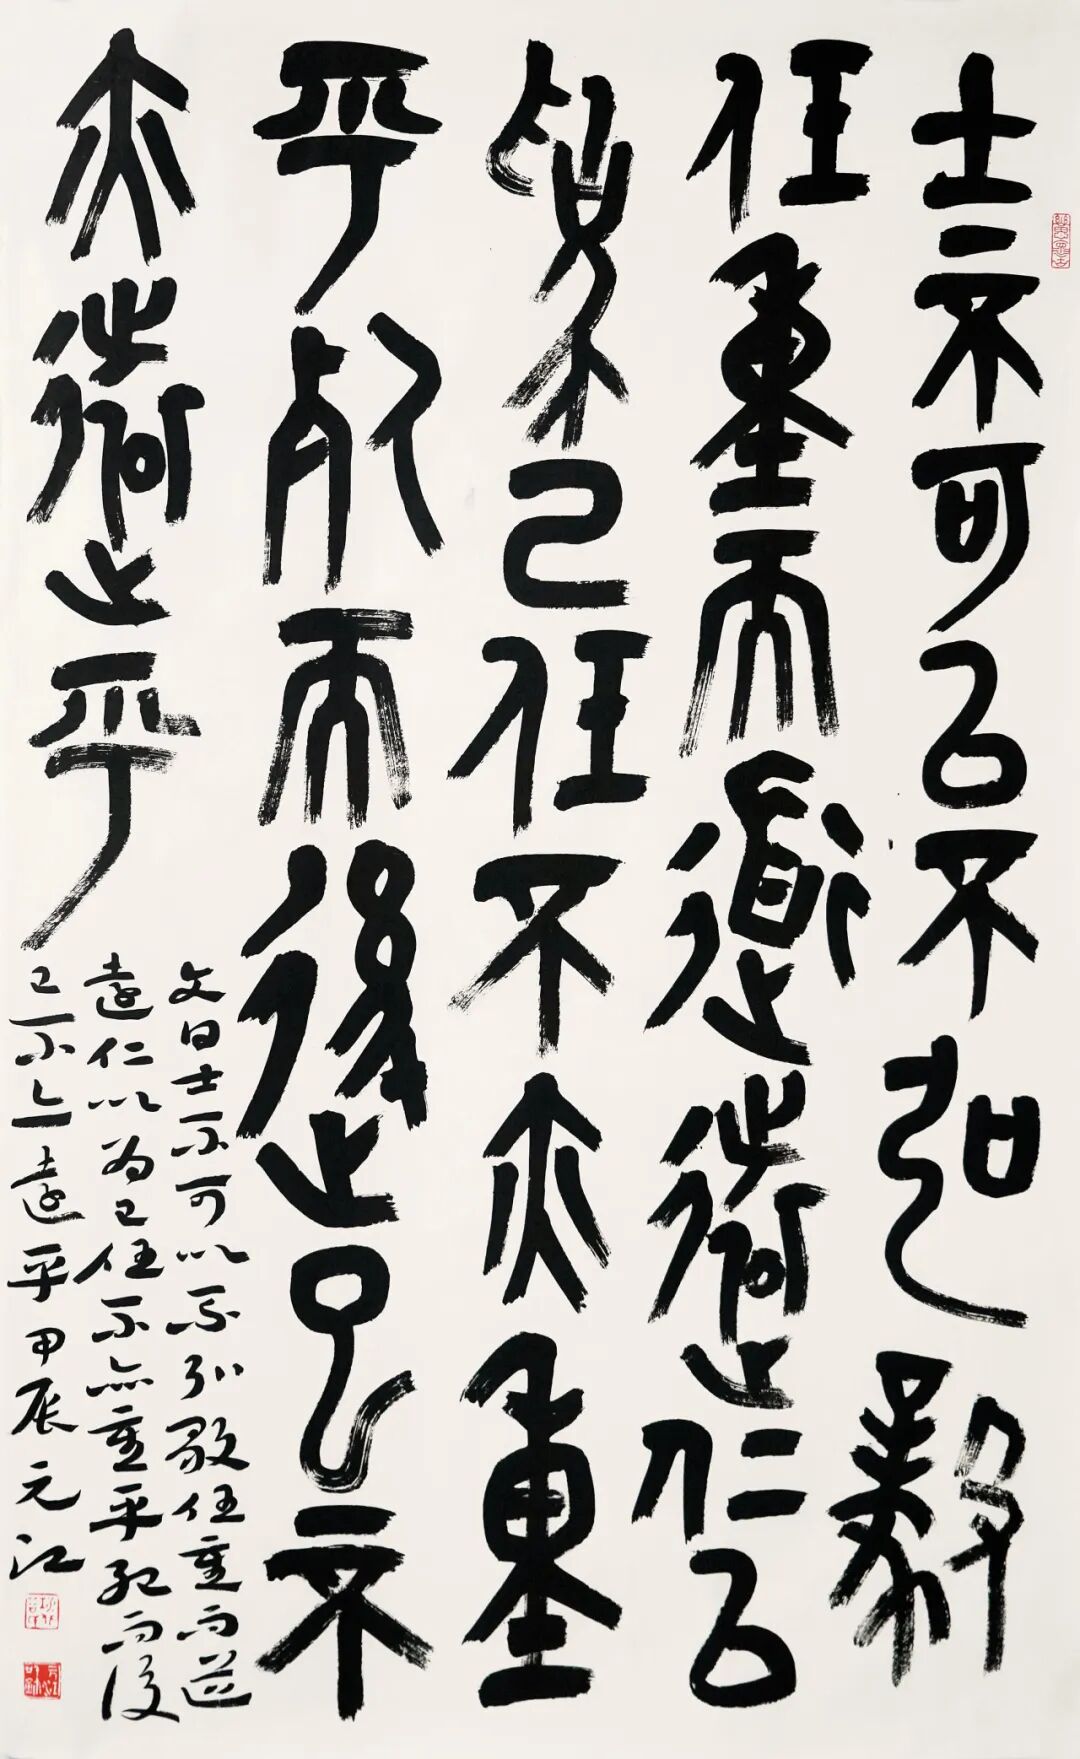 士不可以不弘毅
任重而道遠仁以
為己任不亦重
乎死而後已不
亦遠乎
文曰士不可以不弘毅任重而道
遠仁以为己任不亦重乎死而後
已不亦遠乎甲辰元江